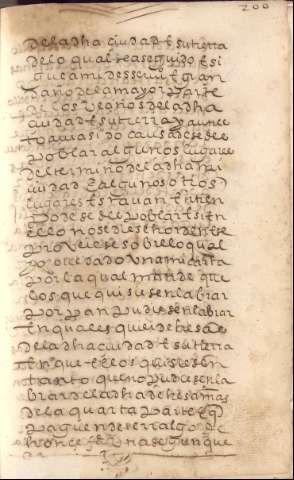 200
de la dha ciudad E su tierra
de lo qual sea seguido E si
gue a mi desserui° E gran
daño de la mayor parte
de los vezinos de la dha
ciudad E su tierra y aun e
to que a sido causa de se des
poblar algunos lugares
del termino de la dha mi
ciudad E algunos otros
lugares Estauan En tien
po de se despoblar E si En
Ello no se diese horden E se
proveiese sobre lo qual
yo ove dado una mi carta
por la qual mande que
los que quisiesen labrar
por pan pudiesen labrar
En quales quier dehesas
de la dha ciudad E su tierra
En que Ellos quisiesen
tanto que no pudiesen la
brar de la dha dehesa mas
de la quarta parte E q
paguen de erbalgo de
honce fa una segun que